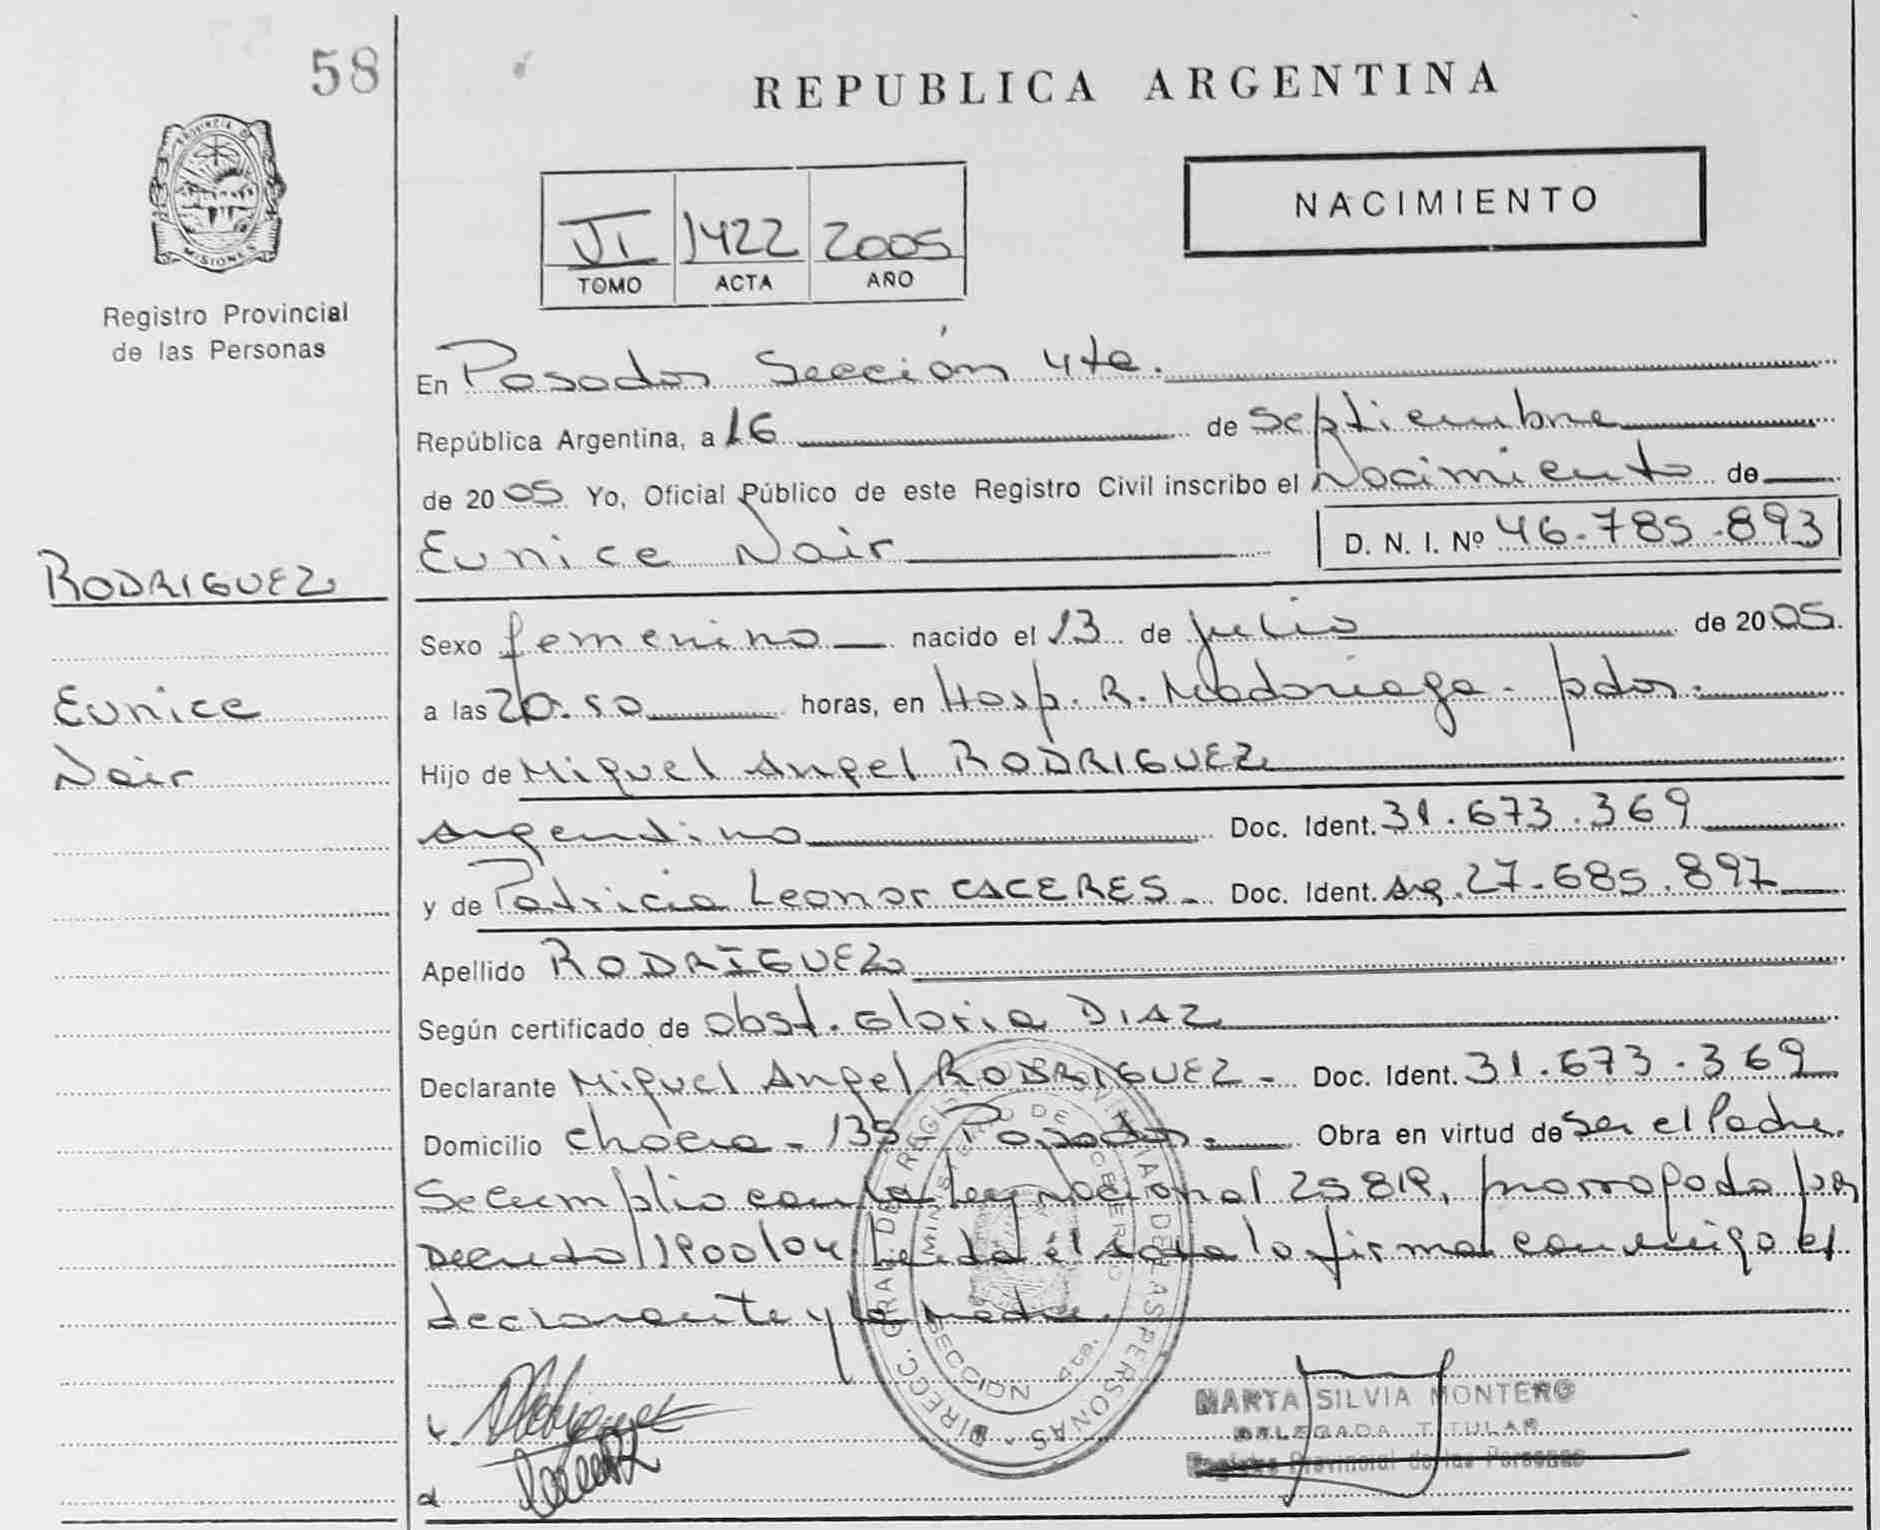 58
REPUBLICA ARGENTINA
PROVINCIA D
MISIONES
Registro Provincial
de las Personas
VI 1422 2005
TOMO ACTA AÑO
NACIMIENTO
En Posadas Sección 4ta.
República Argentina, a 16 de Septiembre
de 2005 Yo, Oficial Público de este Registro Civil inscribo el Nacimiento de
Eunice Nair D. N. I. Nº 46.785.893
RODRIGUEZ
Eunice
Nair
Sexo femenino nacido el 13 de julio de 2005.
a las 20.50 horas, en Hosp. R. Madariaga - pdas.
Hijo de Miguel Angel RODRIGUEZ
Argentino Doc. Ident. 31.673.369
y de Patricia Leonor CACERES - Doc. Ident. Ag. 27.685.897
Apellido RODRIGUEZ
Según certificado de obst. Gloria DIAZ
Declarante Miguel Angel RODRIGUEZ - Doc. Ident. 31.673.369
Domicilio 135 Posadas. Obra en virtud de ser el Padre.
Se cumplio con la ley nacional 25819, prorrogada por
Decreto 1900/04 Leida el acta lo firma conmigo el
declarante y la madre.
DIRECC. GRAL. DE REGISTRO PROVINCIAL DE LAS PERSONAS
MINISTERIO DE GOBIERNO
SECCION 4ta.
MARTA SILVIA MONTERO
DELEGADA TITULAR
Registro Provincial de las Personas